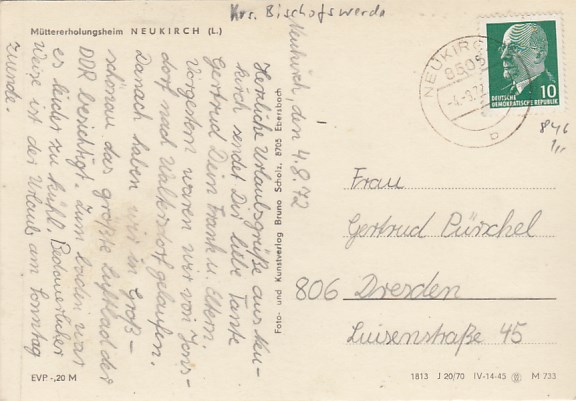 Krs. Bischofswerda
Müttererholungsheim NEUKIRCH (L.)
Neukirch, den 4.8.72
Herzliche Urlaubsgrüße aus Neu-
kirch sendet Dir liebe Tante
Gertrud Dein Frank u. Eltern.
Vorgestern waren wir von Jons-
dorf nach Waltersdorf gelaufen.
Danach haben wir in Groß-
schönau das größte Luftbad der
DDR besichtigt. Zum baden war
es leider zu kühl. Bedauerlicher
Weise ist der Urlaub am Sonntag
zuende.
EVP -,20 M
Foto- und Kunstverlag Bruno Scholz, 8705 Ebersbach
NEUKIRCH
8505
b
10
DEUTSCHE
DEMOKRATISCHE REPUBLIK
Frau
Gertrud Pürschel
806 Dresden
Luisenstraße 45
1813 J 20/70 IV-14-45 M 733